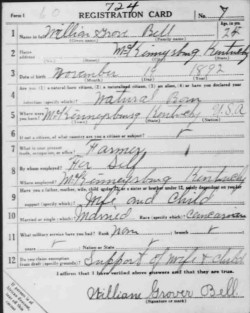 Form 1
724
REGISTRATION CARD
No. 7
1 Name in full William Grove Bell Age, in yrs. 25
(Given name) (Family name)
2 Home address McKinneysburg Kentucky
3 Date of birth November 1892
(Month) (Day) (Year)
4 Are you (1) a natural-born citizen, (2) a naturalized citizen, (3) an alien, (4) or have you declared your intention (specify which)? Natural Born
5 Where were you born? McKinneysburg Kentucky U.S.A
6 If not a citizen, of what country are you a citizen or subject?
7 What is your present trade, occupation, or office? Farmer
8 By whom employed? Self
Where employed? McKinneysburg Kentucky
9 Have you a father, mother, wife, child under 12, or a sister or brother under 12, solely dependent on you for support (specify which)? Wife and Child
10 Married or single (which)? Married Race (specify which)? Caucasian
11 What military service have you had? Rank None ; branch
years Nation or State
12 Do you claim exemption from draft (specify grounds)? Support of wife & child
I affirm that I have verified above answers and that they are true.
William Grover Bell
(Signature or mark)